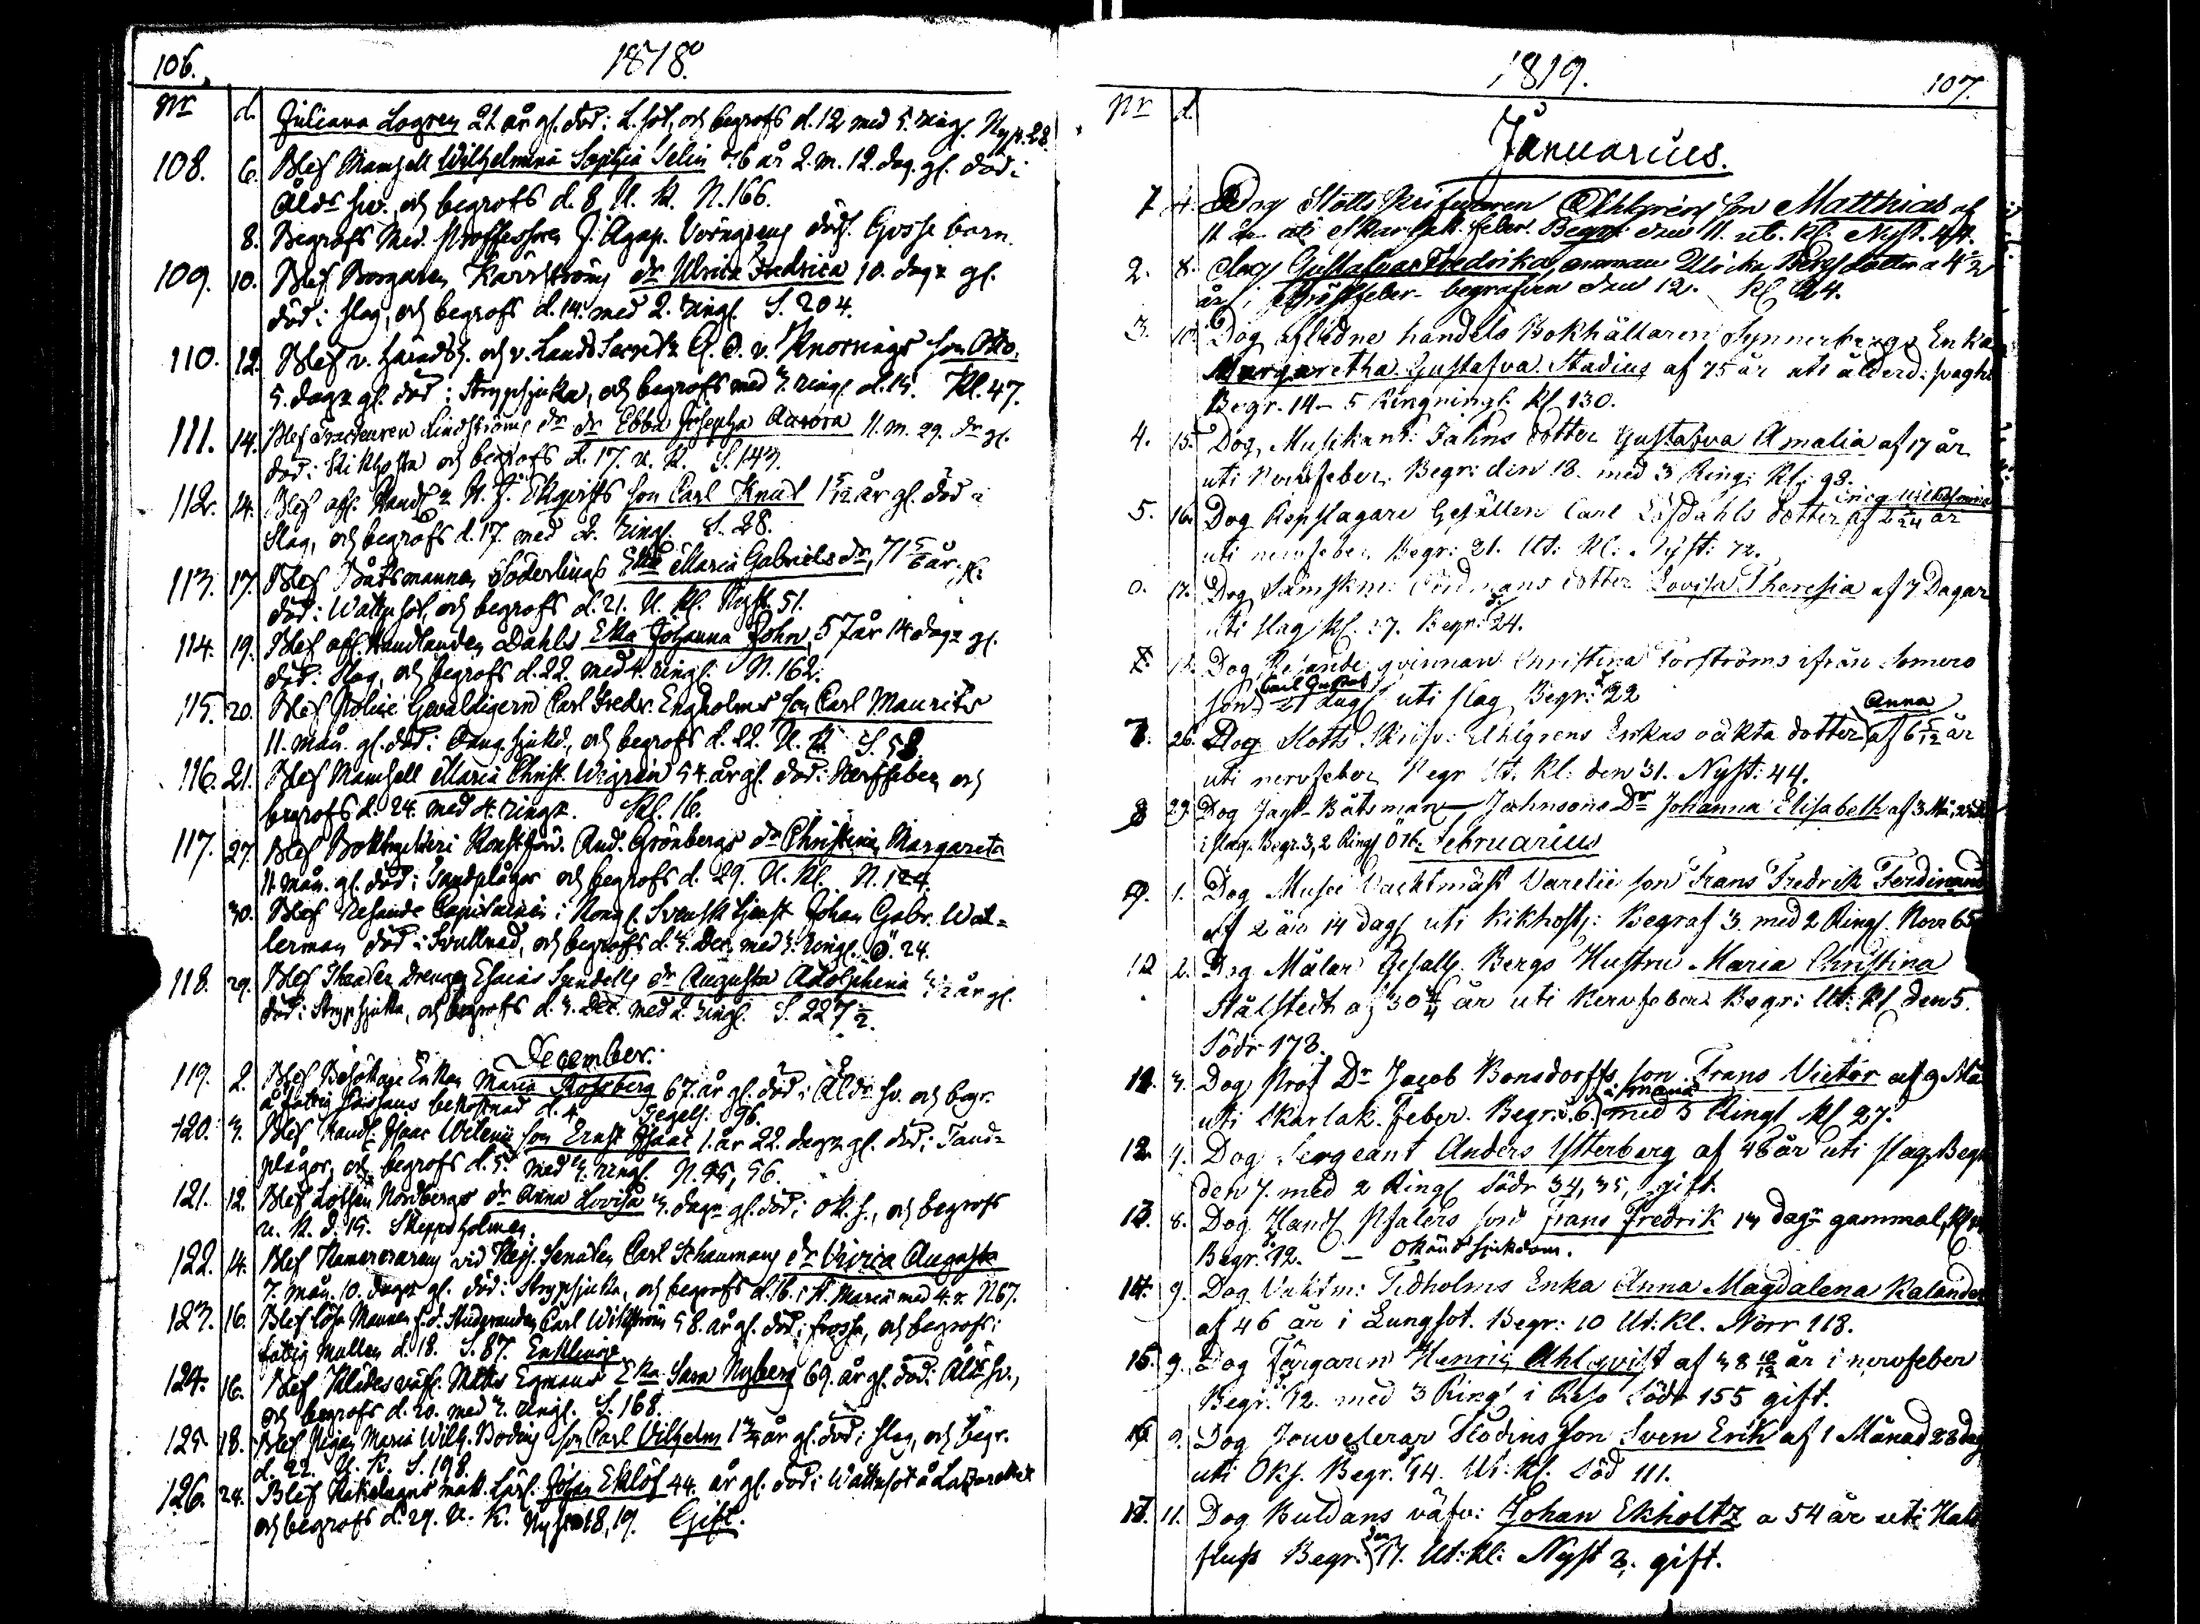 106.
1818.
Nr d.
Juliana Logren 21 år gl. död i L. sot, och begrofs d. 12 med 5. ringn. Nyst. 28.
108. 6. Blef Mamsell Wilhelmina Sophia Selin 76 år 2. m. 12. dag. gl. död i
Åldr. sw. och begrofs d. 8. U. K. N. 166.
8. Begrofs Med. Professoren J. Agap. Törngrens Gosse barn
109. 10. Blef Borgaren Karrströms dr Ulrica Fredrica 10. dagr gl.
död i slag, och begrofs d. 14. med 2. ringn. S. 204.
110. 12. Blef v. Häradsh. och v. Lands Secret. v. Knorrings son Otto,
5. dagr gl. död i Strypsjuka, och begrofs med 3. ringn d. 15. Kl. 47.
111. 14. Blef Lindströms dr Ebba Josepha Aurora 11. m. 29. dr gl.
död i Kikhosta och begrofs d. 17. u. K. S. 143.
112. 14. Blef afl. Handl. Ekqvists son Carl Knut 1 5/12 år gl. död i
Slag, och begrofs d. 17. med 2. ringn. S. 28.
113. 17. Blef Båtsmannen Söderlings Maria Gabriels dr, 71 5/6 år,
död i Wattusot, och begrofs d. 21. U. Kl. Nyst. 51.
114. 19. Blef afl. Handlanden Dahls Eka Johanna John, 57 år 14 dagr gl.
död i Slag, och begrofs d. 22. med 4. ringn. N. 162.
115. 20. Blef Police Gevaldigern Carl Fredr. Engholms son Carl Maurits
11. mån. gl. död i sjukd., och begrofs d. 22. U. K. S. 58.
116. 21. Blef Mamsell Maria Christ. Wigren 54. år gl. död i Nerffeber och
begrofs d. 24. med 4. ringn. Kl. 16.
117. 27. Blef Boktryckeri Konstförv. And. Grönbergs dr Christina Margareta
11. mån. gl. död i Tandplågor och begrofs d. 29. U. Kl. N. 124.
30. Blef Resande Capitainen i Kongl. Svensk tjenst Johan Gabr. Wal=
lerman död i Svullnad, och begrofs d. 3. Dec. med 3. ringn. Ö. 24.
118. 29. Blef Theater drengen Esaias Syndells dr Augusta Adolphina år gl.
död i Strypsjuka, och begrofs d. 3. Dec. med 2. ringn. S. 227 1/2.
December.
119. 2. Blef Besökare Enkan Maria Rosberg 67. år gl. död i Åldr. sv. och begr.
å fattig Cassans bekostnad d. 4 96.
120. 3. Blef Handl. Isaac Wileni son Ernst Isaac 1. år 22. dagr gl. död i Tand=
plågor, och begrofs d. 5. med 3. ringn. N. 95, 96.
121. 12. Blef Lotsen Nordbergs dr Anna Lovisa 3. dagr gl. död i ok. s., och begrofs
u. K. d. 15. Skeppsholmen.
122. 14. Blef Kamereraren vid Kejs. Senaten Carl Schaumans dr Vivica Augusta
7. mån. 10. dagr gl. död i Strypsjuka, och begrofs d. 16. i St. Maria med 4. r. N 67.
123. 16. Blef Löse Mannen f. d. Studeranden Carl Wikström 58. år gl. död i frossa, och begrofs i
fattig mullen d. 18. S. 87. Enklinge
124. 16. Blef Klädesväfv. Matts Egmans Eka Sara Nyberg 69. år gl. död i Åld. sv.,
och begrofs d. 20. med 3. ringn. S. 168.
125. 18. Blef Pigan Maria Wilh. Bodins son Carl Vilhelm 1 3/4 år gl. död i slag, och begr.
d. 22. U. K. S. 198.
126. 24. Blef Kakelugns mak. Lärl. Johan Eklöf 44. år gl. död i Wattusot å Lazarettet
och begrofs d. 29. U. K. Nyst. 18, 19. Gift.
1819.
107.
Nr d.
Januarius.
1. 4. Dog Slotts Skrifvaren Uhlgrens son Matthias af
11 år uti Skarlak. feber. Begr. den 11. ut. Kl. Nyst. 44.
2. 8. Dog Gustafva Fredrika, Ulrika Bergs dotter a 4 1/2
år, i Bröstfeber - begrafven den 12. Kl. 24.
3. 10. Dog aflidne handels Bokhållaren Synnerbergs Enka
Margaretha Gustafva Stadius af 75 år uti ålderd. svagh.
Begr. 14 - 5 Ringningr. Kl. 130.
4. 15. Dog Musikant. Jahns dotter Gustafva Amalia af 17 år
uti Nervfeber, Begr. den 18. med 3 Ring: Kl. 98.
5. 16. Dog Repslagare Gesällen Carl Löfdahls dotter af 2 år
uti nervfeber Begr: 21. Ut: Kl: Nyst: 72.
17. Dog dotter Lovisa Theresia af 7 Dagar
uti slag Kl. 37. Begr: 24.
Dog Resande qvinnan Christina Torströms ifrån Somero
son Carl Gustaf 21 dags uti slag Begr: 22
7. 26. Dog Slotts Skrifv: Uhlgrens Enkas oäkta dotter Anna af 6 år
uti nervfeber Begr Ut. Kl: den 31. Nyst: 44.
8 29. Dog Jagt-Båtsman Jahnsons Dr Johanna Elisabeth af 3 Må.
i slag. Begr. 3, 2 Ring. Februarius
9. 1. Dog Musei Vachtmäst Varelii son Frans Fredrik Ferdinand
af 2 år 14 dags uti kikhost: Begraf 3. med 2 Ring. Norr 65
10 2. Dog Målar Gesäll. Bergs Hustru Maria Christina
Stålstedt af 30 3/4 år uti Nervfeber Begr: Ut: Kl den 5.
Södr 173.
11. 3. Dog Prof. Dr Jacob Bonsdorffs son Frans Victor af 9 Må
uti Skarlak. Feber. Begr. 6. med 5 Ring. Kl 27.
12. 4. Dog Sergeant Anders Ytterberg af 48 år uti slag. Begr
den 7. med 2 Ring. Södr 34, 35, gift.
13. 8. Dog Handl Psalers son Frans Fredrik 14 dagr gammal,
Begr. 12. — Okänd sjukdom.
14. 9. Dog Vaktm: Tidholms Enka Anna Magdalena Kalander
af 46 år i Lungsot. Begr: 10 Ut: kl. Norr 118.
15. 9. Dog Färgaren Henric Ahlqvist af 38 10/12 år i nervfeber
Begr. 12. med 3 Ring. i Reso Södr 155 gift.
16. 9. Dog Jouvelerar Flodins son Sven Erik af 1 Månad 28 dag
uti Oks. Begr. 14. Ut. Kl. Söd 111.
17. 11. Dog Buldans väfv: Johan Ekholtz a 54 år uti Hals
fluss Begr: 17. Ut: kl: Nyst 3. gift.